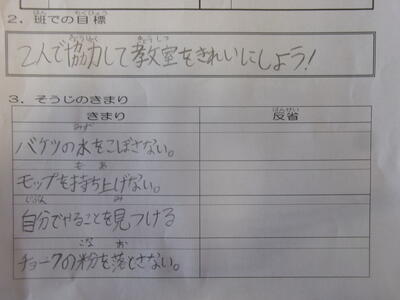 2．班での目標
2人で協力して教室をきれいにしよう！
3．そうじのきまり
きまり 反省
バケツの水をこぼさない。
モップを持ち上げない。
自分でやることを見つける
チョークの粉を落とさない。